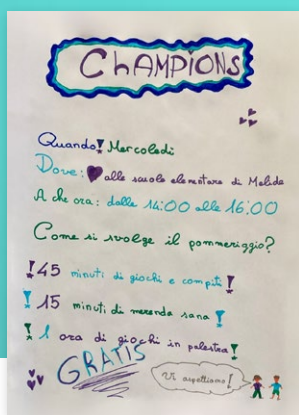 ChAMPIONS
Quando! Mercoledì
Dove: alle scuole elementare di Melide
A che ora: dalle 14:00 alle 16:00
Come si svolge il pommeriggio?
! 45 minuti di giochi e compiti!
! 15 minuti di merenda sana!
! 1 ora di giochi in palestra!
GRATIS
Vi aspettiamo!